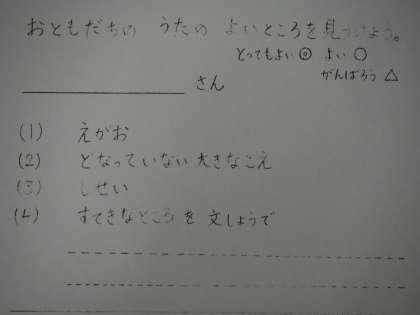 おともだちの うたの よいところを見つけよう。
とってもよい ◎ よい ○
がんばろう △
さん
(1) えがお
(2) どなっていない 大きなこえ
(3) しせい
(4) すてきなところ を 文しょうで